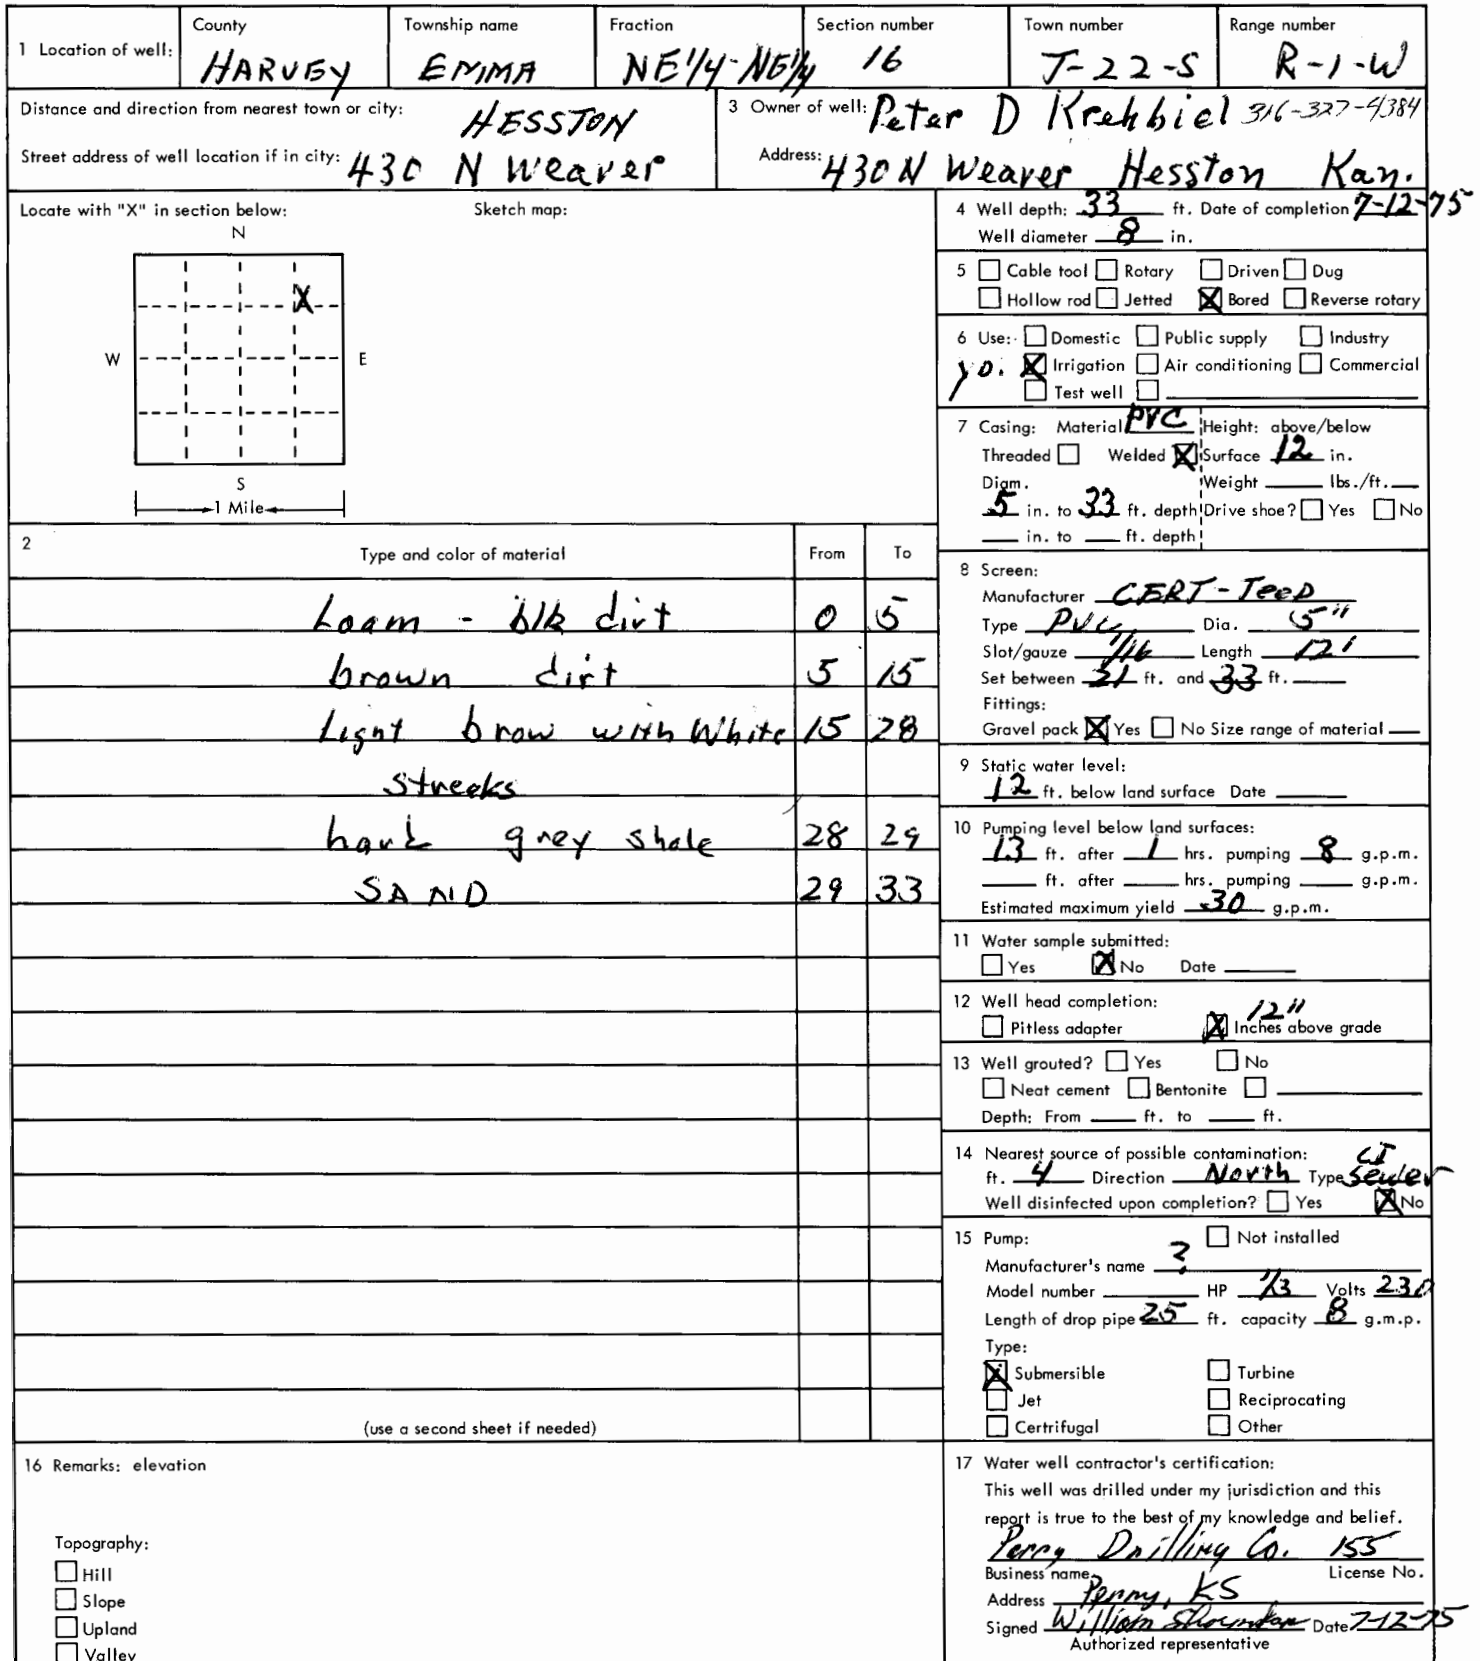 1 Location of well: County Township name Fraction Section number Town number Range number
HARVEY EMMA NE1/4-NE1/4 16 T-22-S R-1-W
Distance and direction from nearest town or city: HESSTON
Street address of well location if in city: 430 N Weaver
3 Owner of well: Peter D Krehbiel 316-327-4384
Address: 430 N Weaver Hesston Kan.
Locate with "X" in section below: Sketch map:
N
X
W E
S
1 Mile
2 Type and color of material From To
Loam - blk dirt 0 5
brown dirt 5 15
Light brow with White 15 28
streeks
hark grey shale 28 29
SAND 29 33
(use a second sheet if needed)
16 Remarks: elevation
Topography:
Hill
Slope
Upland
Valley
4 Well depth: 33 ft. Date of completion 7-12-75
Well diameter 8 in.
5 Cable tool Rotary Driven Dug
Hollow rod Jetted X Bored Reverse rotary
6 Use: Domestic Public supply Industry
yd. X Irrigation Air conditioning Commercial
Test well
7 Casing: Material PVC Height: above/below
Threaded Welded X Surface 12 in.
Diam. Weight lbs./ft.
5 in. to 33 ft. depth Drive shoe? Yes No
in. to ft. depth
8 Screen:
Manufacturer CERT-TeeD
Type PVC Dia. 5"
Slot/gauze 1/16 Length 12'
Set between 21 ft. and 33 ft.
Fittings:
Gravel pack X Yes No Size range of material
9 Static water level:
12 ft. below land surface Date
10 Pumping level below land surfaces:
13 ft. after 1 hrs. pumping 8 g.p.m.
ft. after hrs. pumping g.p.m.
Estimated maximum yield 30 g.p.m.
11 Water sample submitted:
Yes X No Date
12 Well head completion: 12"
Pitless adapter X Inches above grade
13 Well grouted? Yes No
Neat cement Bentonite
Depth: From ft. to ft.
14 Nearest source of possible contamination: CI
ft. 4 Direction North Type sewer
Well disinfected upon completion? Yes X No
15 Pump: Not installed
Manufacturer's name ?
Model number HP 1/3 Volts 230
Length of drop pipe 25 ft. capacity 8 g.m.p.
Type:
X Submersible Turbine
Jet Reciprocating
Certrifugal Other
17 Water well contractor's certification:
This well was drilled under my jurisdiction and this
report is true to the best of my knowledge and belief.
Perry Drilling Co. 155
Business name License No.
Address Perry, KS
Signed William Date 7-12-75
Authorized representative